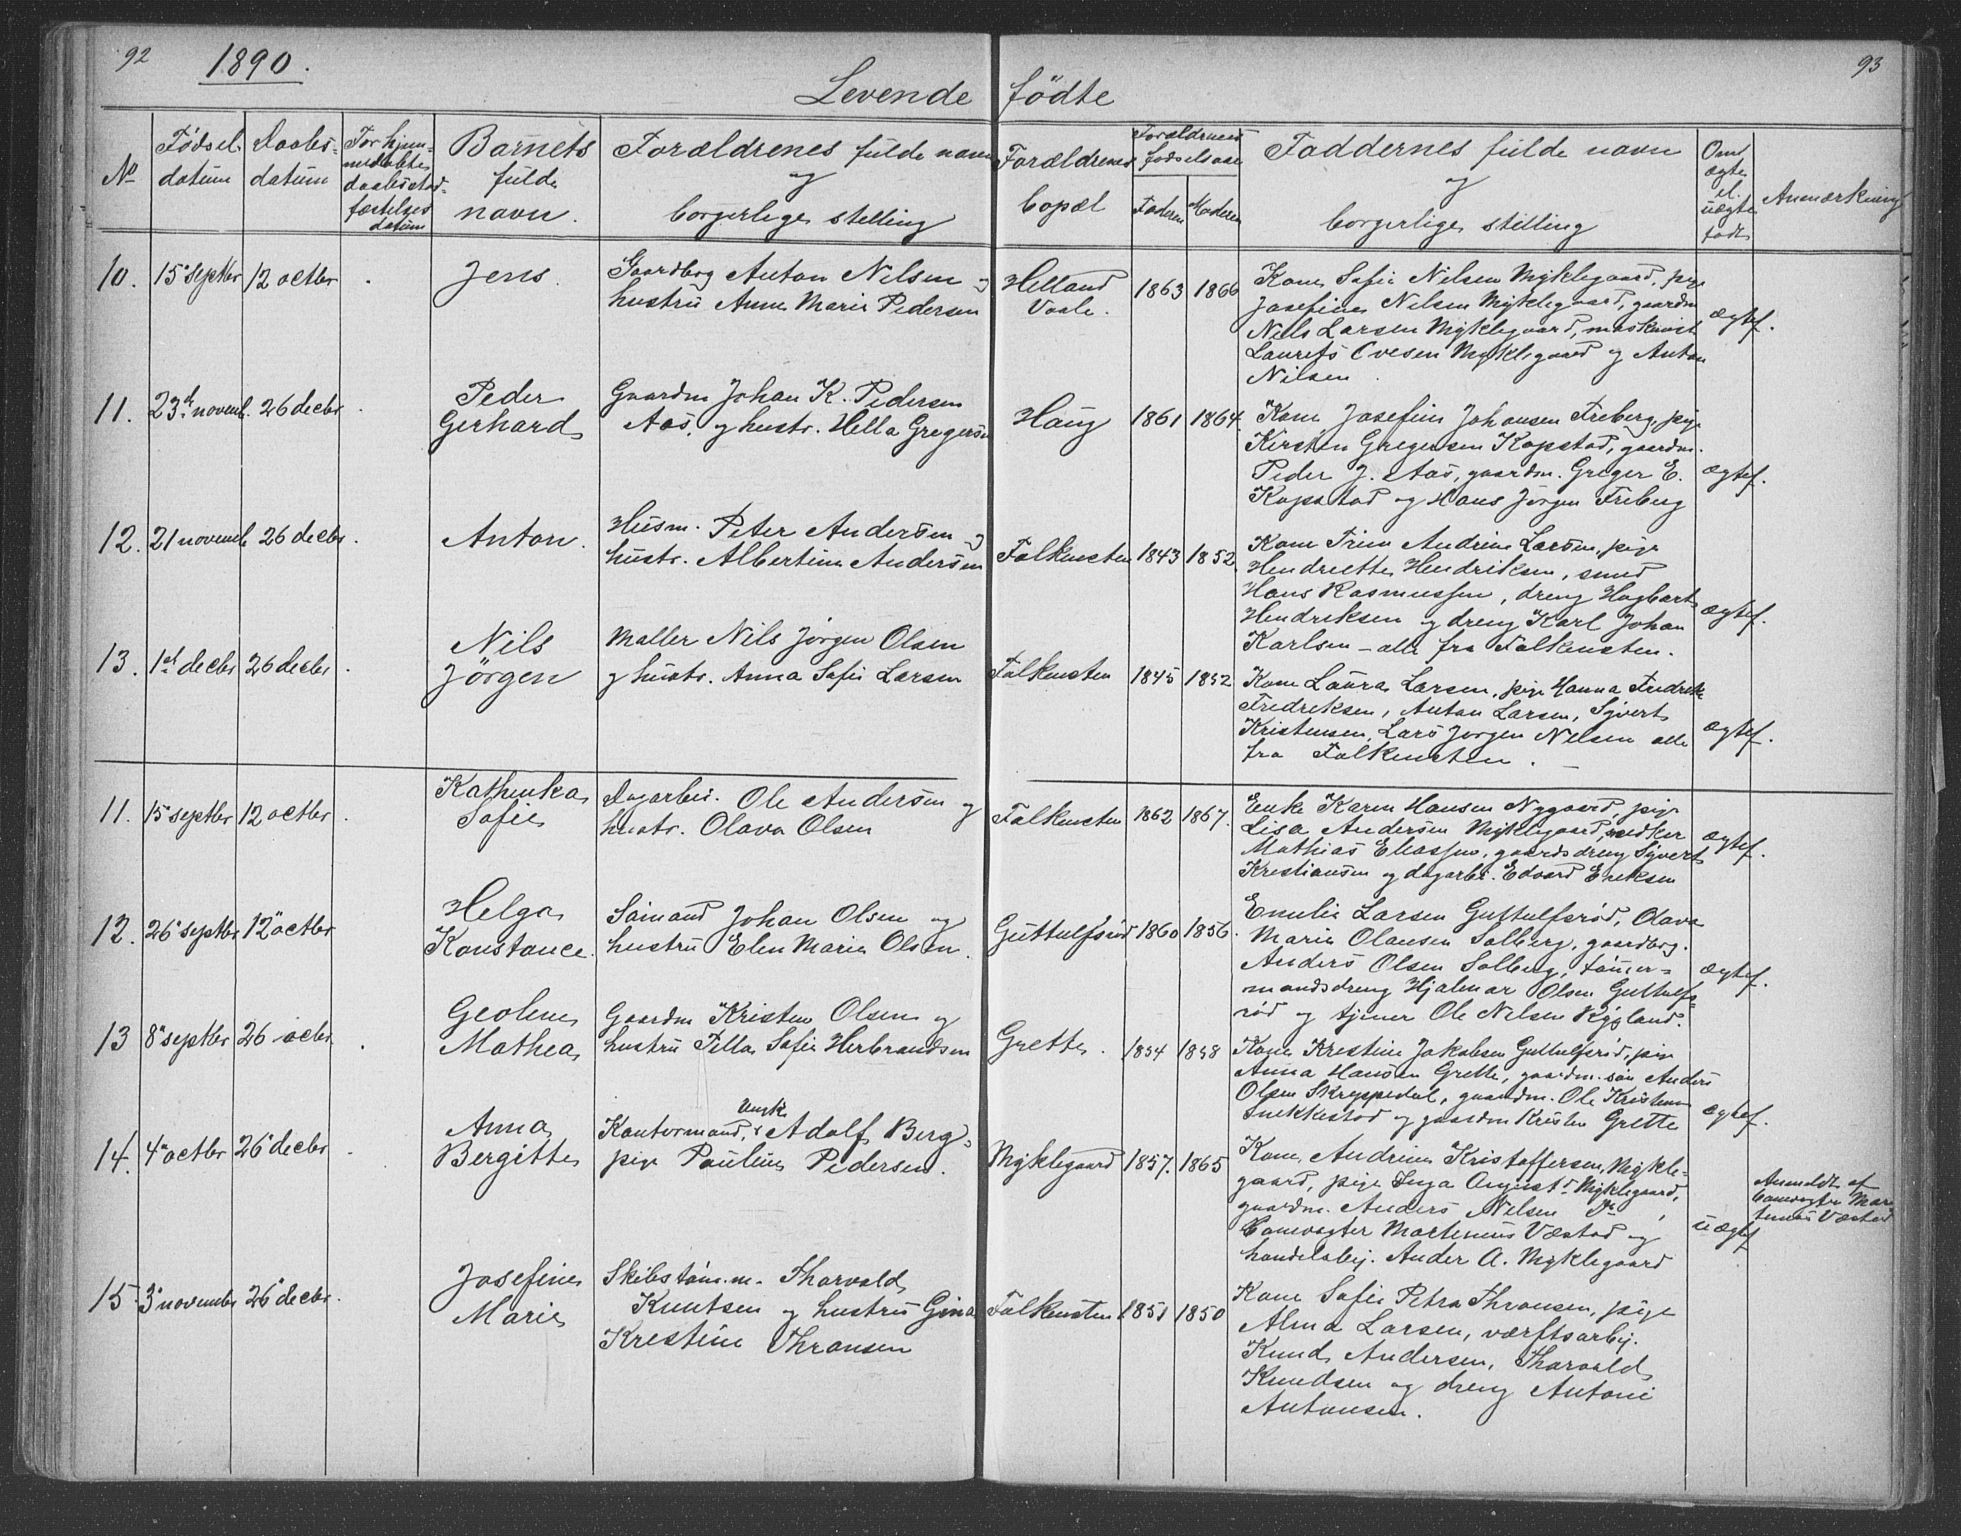 92 1890.
Levende fødte
93
No
Fødsels datum
Daabs- datum
For hjemmedøbte daabsstadfæstelses datum
Barnets fulde navn.
Forældrenes fulde navn og borgerlige stilling
Forældrenes bopæl
Forældrenes fødselsaar
Faderen Moderen
Faddernes fulde navn og borgerlige stilling
Om ægte el. uægte født
Anmærkning
10. 15 septbr 12 octbr . Jens. Gaardbrg Anton Nilsen og Helland 1863 1866 Kone Sofie Nilsen Myklegaard, pige
hustru Anne Marie Pedersen Vaale. Josefine Nilsen Myklegaard, gaardm
Nils Larsen Myklegaard, maskinist ægtef.
Laurits Ovesen Myklegaard og Anton
Nilsen.
11. 23d novemb. 26 decbr . Peder Gaardm Johan K. Pedersen Haug 1861 1864 Kone Josefine Johansen Freberg, pige
Gerhard Aas, og hustr. Hella Gregersen Kirsten Gregersen Kopstad, gaardm.
Peder J. Aas, gaardm. Greger E. ægtef.
Kopstad og Hans Jørgen Freberg
12. 21 novemb 26 decbr. Anton. Husm. Peter Andersen og Falkensten 1843 1852. Kone Trine Andrine Larsen, pige
hustr. Albertine Andersen Hendriette Hendriksen, smed
Hans Rasmussen, dreng Hagbart ægtef.
Hendriksen og dreng Karl Johan
Karlsen - alle fra Falkensten.
13. 1st decbr 26 decbr . Nils Maller Nils Jørgen Olsen Falkensten 1845 1852 Kone Laura Larsen, pige Hanna Fredrik
Jørgen og hustr. Anna Sofie Larsen Fredriksen, Anton Larsen, Syvert
Kristensen, Lars Jørgen Nilsen alle ægtef.
fra Falkensten.
11. 15 septbr 12 octbr . Kathinka Dagarbei. Ole Andersen og Falkensten 1862 1867. Enke Karen Hansen Nygaard, pige
Sofie hustr. Olava Olsen Lisa Andersen Myklegaard,
Mathias Eliassen, gaardsdreng Syvert ægtef.
Kristiansen og dagarbei. Edvard Eriksen
12. 26 septbr 12 octbr Helga Sømand Johan Olsen og Guttulfsrød 1860 1856. Emilie Larsen Guttulfsrød, Olava
Konstance. hustru Elen Marie Olsen. Marie Olausen Solberg, gaardbrg.
Anders Olsen Solberg, tømmer- ægtef.
mandsdreng Hjalmar Olsen Guttulfs-
rød og tjener Ole Nilsen
13 8 septbr 26 octbr . Geoline Gaardm Kristen Olsen og Grette. 1854 1858 Kone Kristine Jakobsen Guttulfsrød, pige
Mathea hustru Tella Sofie Herbrandsen Anna Hansen Grette, gaardm. søn Anders
Olsen Skreppedal, gaardm. Ole Kristensen
Snekkestad og gaardm Kristen Grette ægtef.
14. 4 octbr 26 decbr . Anna Kontormand, Adolf Berg- Myklegaard 1857. 1865 Kone Andrine Kristoffersen Mykle-
Bergitte pige Pauline Pedersen. gaard, pige Inga August Myklegaard,
gaardm. Anders Nilsen Do,
banevogter Martinius Væstad og uægtef
handelsbj. Ander A. Myklegaard
Anmeldt af
banevogter Mar
tinius Væstad
15 3 novembr 26 decbr. Josefine Skibstøm.m. Tharvald Falkensten 1851 1850 Kone Sofie Petra Thransen, pige
Marie Knutsen og hustru Gina Alma Larsen, værftsarbj.
Kristine Thransen Knud Andersen, Tharvald
Knudsen og dreng Antoni
Antonsen.